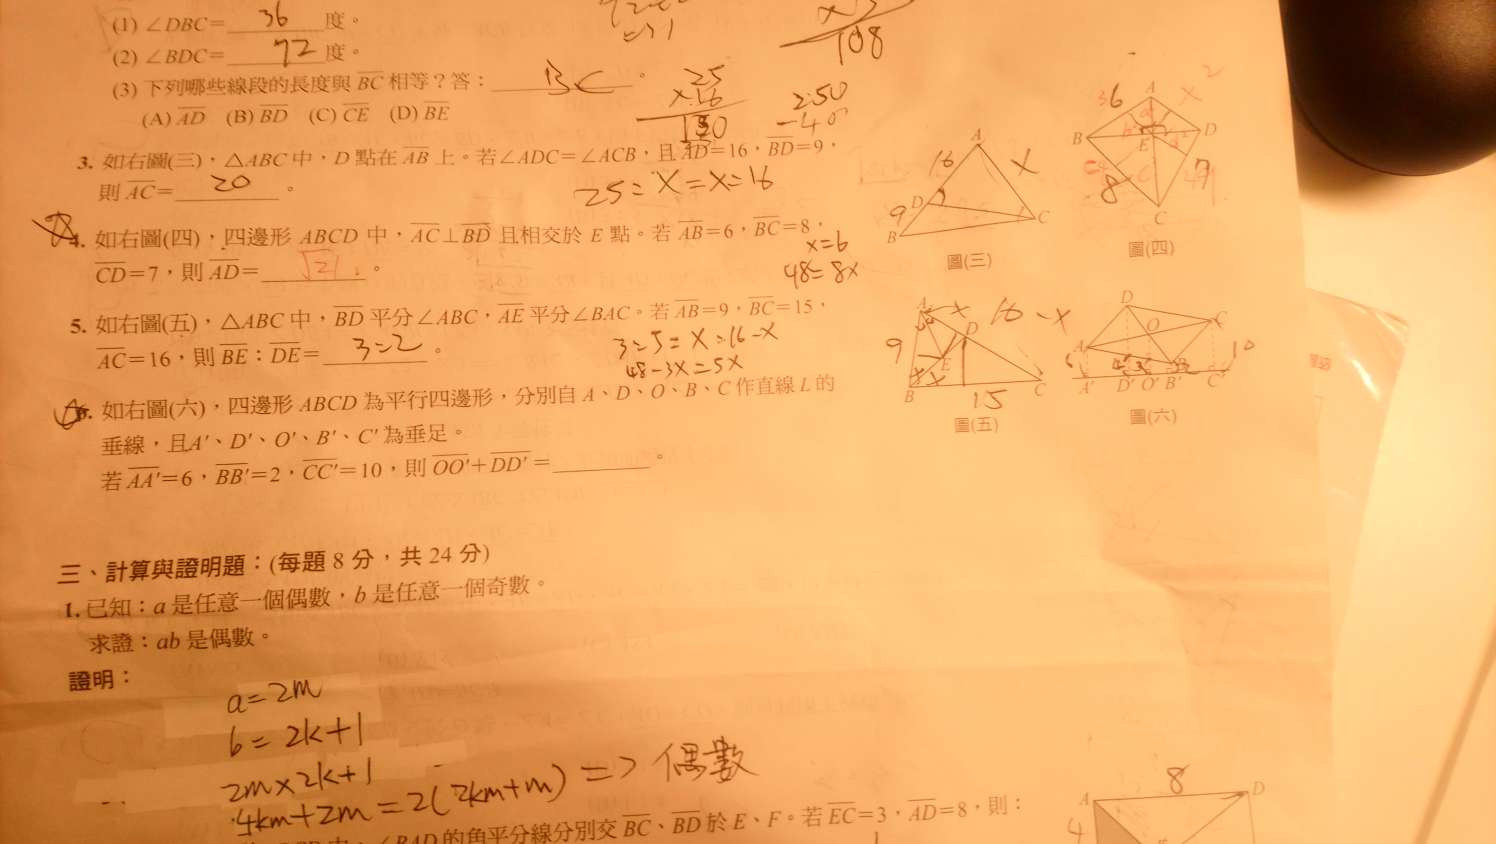 (1) ∠DBC= 36 度。
(2) ∠BDC= 72 度。
(3) 下列哪些線段的長度與 BC 相等？答： BC 。
(A) AD (B) BD (C) CE (D) BE
108
25
×16
250
3. 如右圖(三)，△ABC 中，D 點在 AB 上。若∠ADC=∠ACB，且 AD=16，BD=9，
則 AC= 20 。
25=X=X=16
4. 如右圖(四)，四邊形 ABCD 中，AC⊥BD 且相交於 E 點。若 AB=6，BC=8，
CD=7，則 AD= √21 。
x=6
48=8x
5. 如右圖(五)，△ABC 中，BD 平分∠ABC，AE 平分∠BAC。若 AB=9，BC=15，
AC=16，則 BE：DE= 3=2 。
3=5=X=16-X
48-3X=5X
6. 如右圖(六)，四邊形 ABCD 為平行四邊形，分別自 A、D、O、B、C 作直線 L 的
垂線，且A'、D'、O'、B'、C' 為垂足。
若 AA'=6，BB'=2，CC'=10，則 OO'+DD'= 。
A
16
X
D
9
B
C
圖(三)
A
6
X
B
D
E
8
7
C
圖(四)
A
X
16-X
D
9
E
B
15
C
圖(五)
D
C
O
A
B
10
A' D' O' B' C'
圖(六)
三、計算與證明題：(每題 8 分，共 24 分)
1. 已知：a 是任意一個偶數，b 是任意一個奇數。
求證：ab 是偶數。
證明：
a=2m
b=2k+1
2m×2k+1
4km+2m=2(2km+m) => 偶數
∠BAD 的角平分線分別交 BC、BD 於 E、F。若 EC=3，AD=8，則：
A
8
D
4